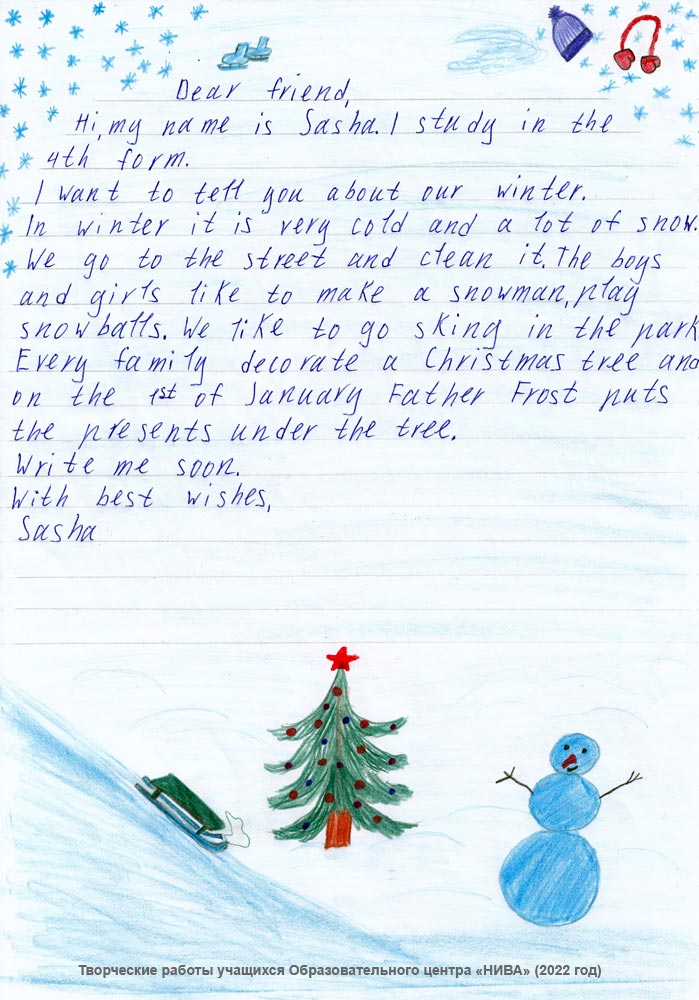 Dear friend,
Hi, my name is Sasha. I study in the
4th form.
I want to tell you about our winter.
In winter it is very cold and a lot of snow.
We go to the street and clean it. The boys
and girls like to make a snowman, play
snowballs. We like to go sking in the park.
Every family decorate a Christmas tree and
on the 1st of January Father Frost puts
the presents under the tree.
Write me soon.
With best wishes,
Sasha
Творческие работы учащихся Образовательного центра «НИВА» (2022 год)